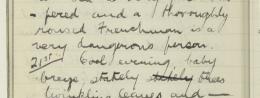 - pered and a thoroughly
roused Frenchman is a
very dangerous person.
21st Cool evening, baby
breeze, stately stately trees
twinkling leaves and —